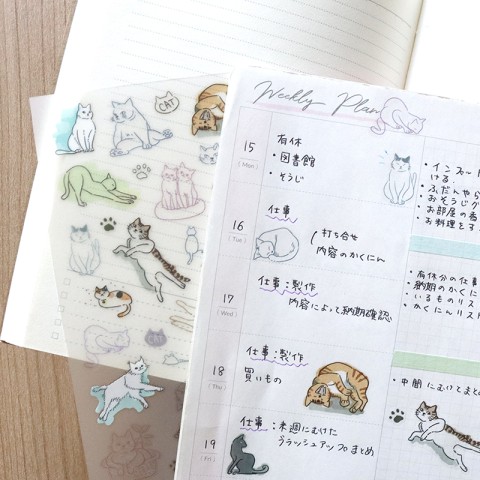 CAT
CAT
Weekly Plan
15
(Mon)
有休
・図書館
・そうじ
16
(Tue)
仕事
打ち合せ
内容のかくにん
17
(Wed)
仕事:製作
内容によって納期確認
18
(Thu)
仕事:製作
買いもの
19
(Fri)
仕事:来週にむけた
ブラッシュアップまとめ
・インプット
ける
・ふだんやら
・おそうじグ
・お部屋の番
・お料理をす
・有休分の仕事
・納期のかくに
・いるものリス
・かくにんリス
・中間にむけてまとめ